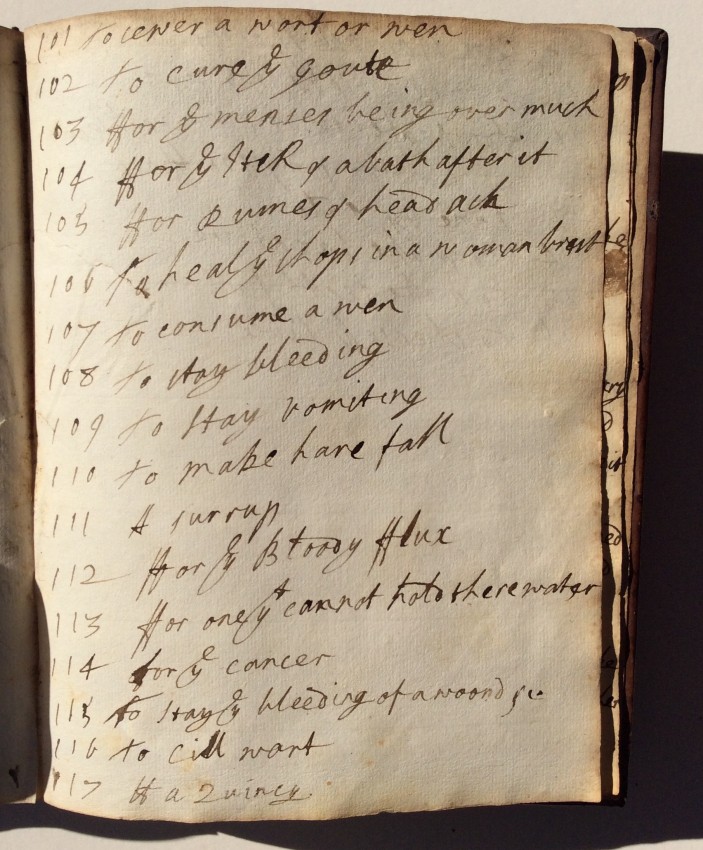 101 to cewer a wort or wen
102 to cure yᵉ goute
103 ffor yᵉ menses being over much
104 ffor yᵉ Itch & a bath after it
105 ffor Rumes & head ach
106 To heal yᵉ chops in a woman brest
107 to consume a wen
108 to stay bleeding
109 to stay vomiting
110 to make hare fall
111 A surrup
112 ffor yᵉ Bloody fflux
113 ffor one yᵗ cannot hold there water
114 for yᵉ cancer
115 to stay yᵉ bleeding of a woond &c
116 to cill wart
117 ff a Quincy